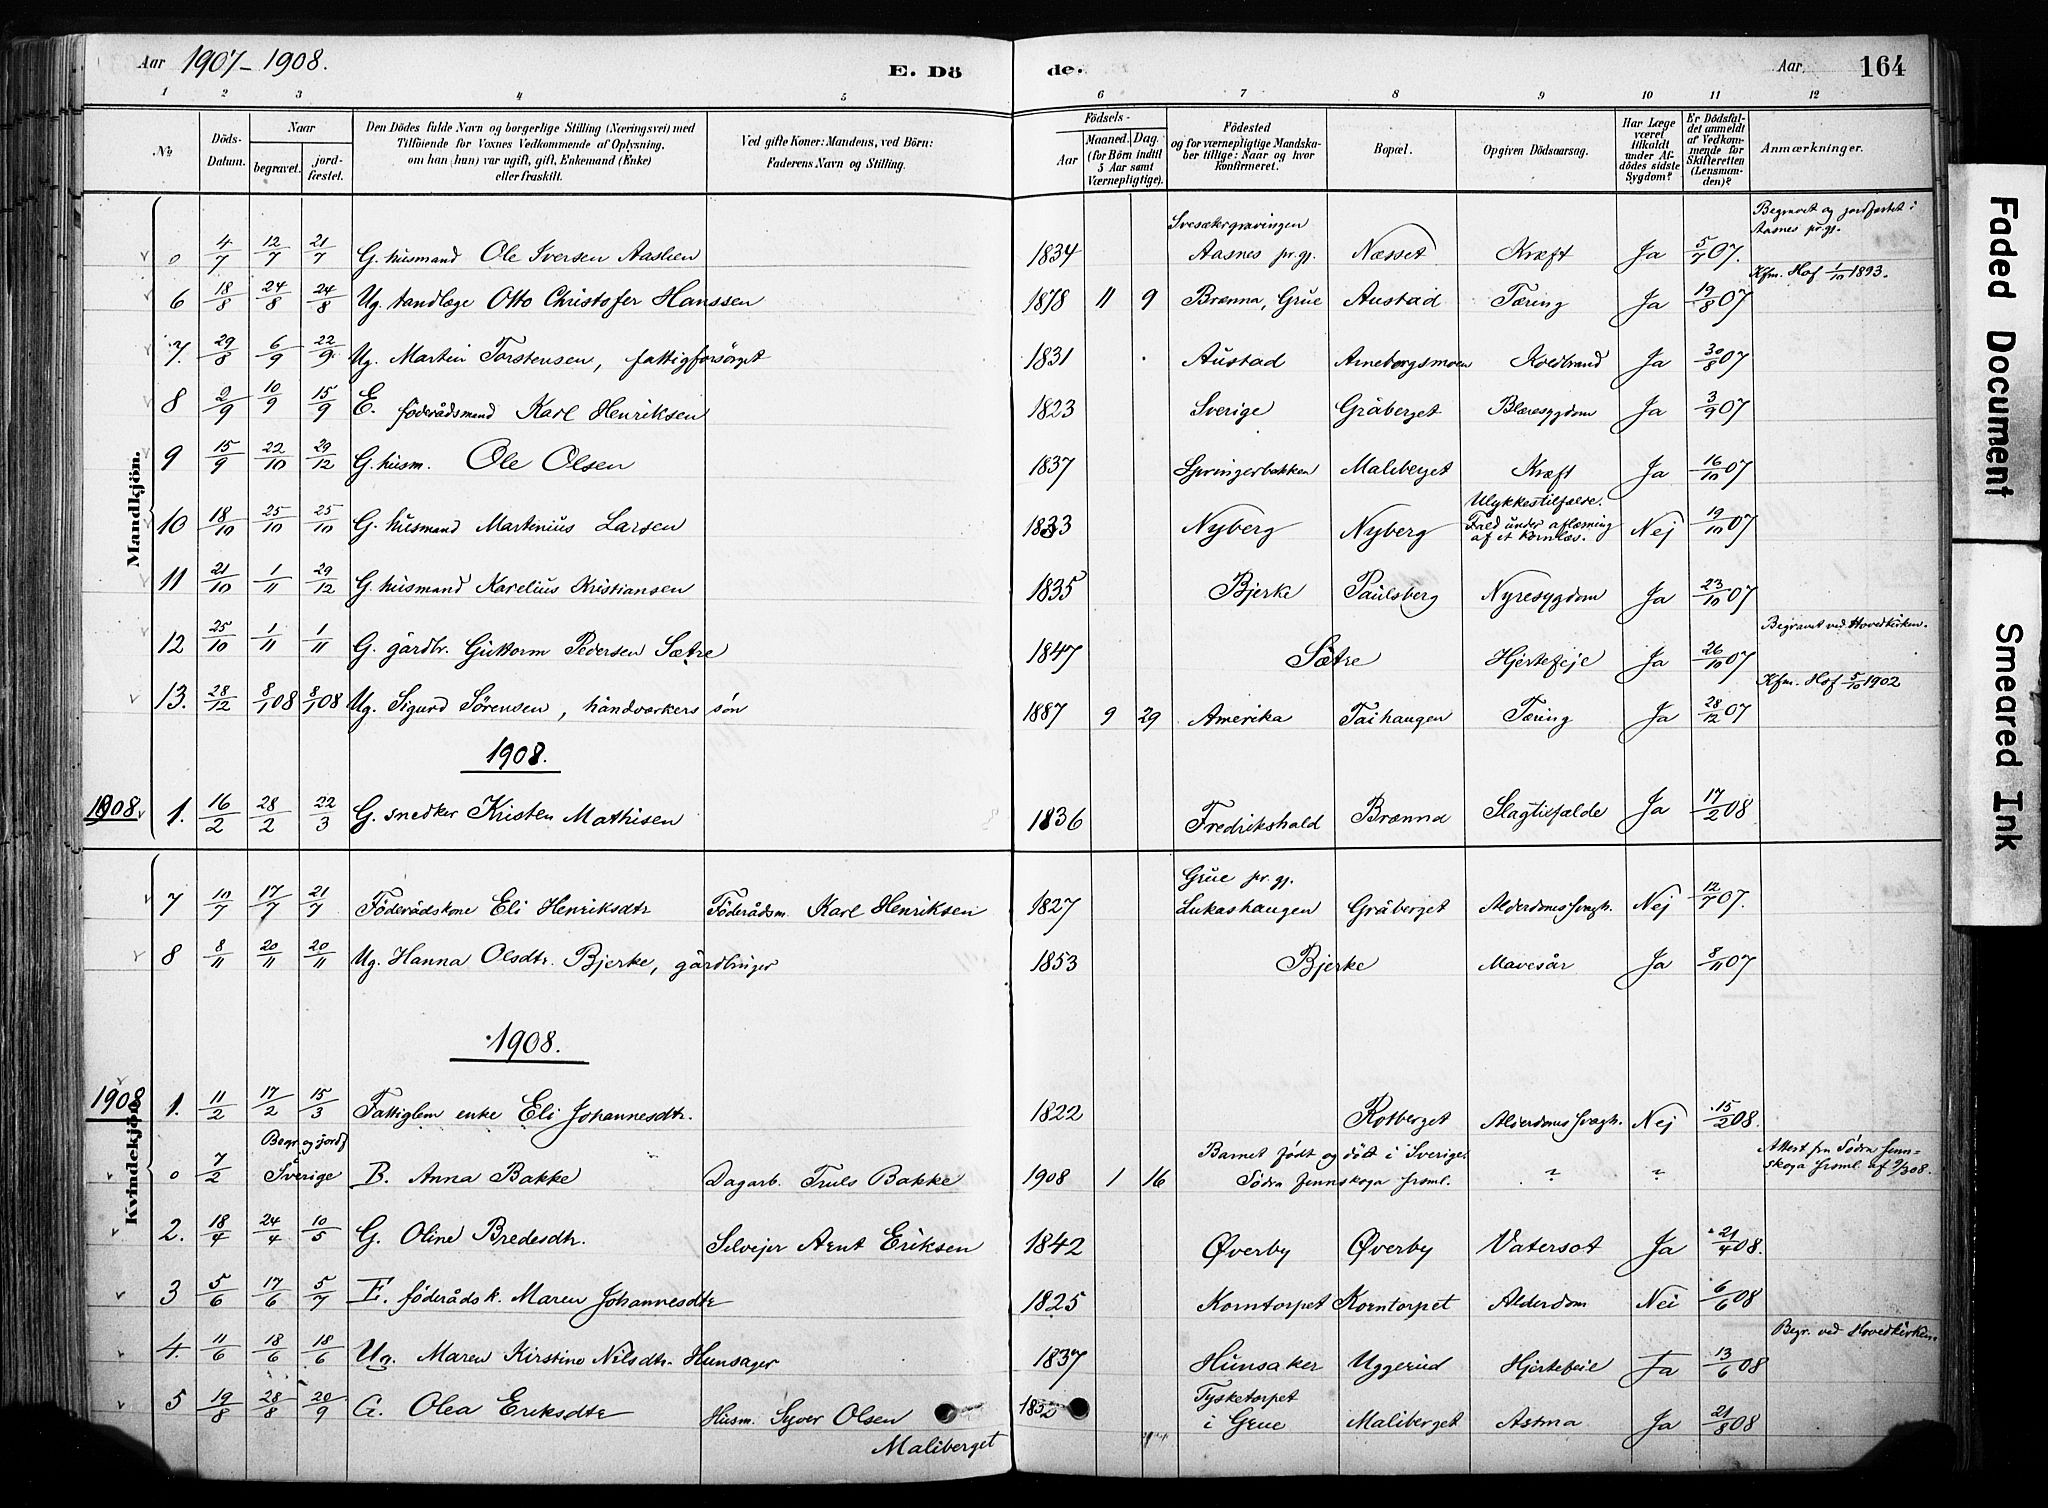 Aar 1907-1908. E. Dö de. Aar. 164
1 2 3 4 5 6 7 8 9 10 11 12
No Döds-Datum. Naar begravet. jord-fæstet. Den Dödes fulde Navn og borgerlige Stilling (Næringsvei) med Tilföiende for Voxnes Vedkommende af Oplysning. om han (hun) var ugift, gift, Enkemand (Enke) eller fraskilt. Ved gifte Koner: Mandens, ved Börn: Faderens Navn og Stilling. Födsels- Aar Maaned. Dag. (for Börn indtil 5 Aar samt Værnepligtige). Födested og for værnepligtige Mandskaber tillige: Naar og hvor Konfirmeret. Bopæl. Opgiven Dödsaarsag. Har Læge været tilkaldt under Afdödes sidste Sygdom? Er Dödsfaldet anmeldt af Vedkommende for Skifteretten (Lensmanden)? Anmærkninger.
Mandkjön.
0 4/7 12/7 21/7 G. husmand Ole Iversen Aaslien 1834 Svesækrgravingen Aasnes pr.gj. Næsset Kræft Ja 5/7 07. Begravet og jordfæstet i Aasnes pr.gj.
6 18/8 24/8 24/8 Ug. tandlæge Otto Christofer Hanssen 1878 11 9 Brænna, Grue Austad Tæring Ja 19/8 07 Kfm. Hof 1/10 1893.
7. 29/8 6/9 22/9 Ug. Martin Torstensen, fattigforsörget 1831 Austad Arneborgsmoen Koldbrand Ja 30/8 07
8 2/9 10/9 15/9 E. föderådsmand Karl Henriksen 1823 Sverige Gråberget Blæresygdom Ja 3/9 07
9 15/9 22/10 29/12 G. husm. Ole Olsen 1837 Springerbakken Maliberget Kræft Ja 16/10 07
10 18/10 25/10 25/10 G. husmand Martinius Larsen 1833 Nyberg Nyberg Ulykkestilfælde. Fald under aflæsning af et kornlæs. Nej 19/10 07
11 21/10 1/11 29/12 G. husmand Karelius Kristiansen 1835 Bjerke Paulsberg Nyresygdom Ja 23/10 07
12 25/10 1/11 1/11 G. gårdbr. Guttorm Pedersen Sætre 1847 Sætre Hjertefeje Ja 26/10 07 Begravet ved Hovedkirken.
13. 28/12 8/1 08 8/1 08 Ug. Sigurd Sörensen, håndværkers sön 1887 9 29 Amerika Taihaugen Tæring Ja 28/12 07 Kfm. Hof 5/10 1902
1908.
1908 1. 16/2 28/2 22/3 G. snedker Kristen Mathisen 1836 Fredrikshald Brænna Slagtilfælde Ja 17/2 08
Kvindekjön.
7 10/7 17/7 21/7 Föderådskone Eli Henriksdtr Föderådsm. Karl Henriksen 1827 Grue pr.gj. Lukashaugen Gråberget Alderdomssvagh. Nej 12/7 07.
8 8/11 20/11 20/11 Ug. Hanna Olsdtr. Bjerke, gårdbruger 1853 Bjerke Mavesår Ja 8/11 07
1908.
1908 1. 11/2 17/2 15/3 Fattiglem enke Eli Johannesdtr. 1822 Rotberget Alderdomssvagh. Nej 15/2 08.
0 7/2 Begr. og jordf. Sverige B. Anna Bakke Dagarb. Truls Bakke 1908 1 16 Barnet födt og dött i Sverige. Södra finnskoga frsml. " " Attest fra Södra finnskoga frsml. af 9/3 08.
2. 18/4 24/4 10/5 G. Oline Bredesdtr. Selvejer Arnt Eriksen 1842 Øverby Øverby Vatersot Ja 21/4 08.
3 5/6 17/6 5/7 E. föderådsk. Maren Johannesdtr 1825 Korntorpet Korntorpet Alderdom Nei 6/6 08
4. 11/6 18/6 18/6 Ug. Maren Kirstine Nilsdtr. Hunsager 1837 Hunsaker Uggerud Hjertefeil Ja 13/6 08 Begr. ved Hovedkirken.
5 19/8 28/8 20/9 G. Olea Eriksdtr Husm. Syver Olsen Maliberget 1832 Tysketorpet i Grue Maliberget Astma Ja 21/8 08
Faded Document
Smeared Ink